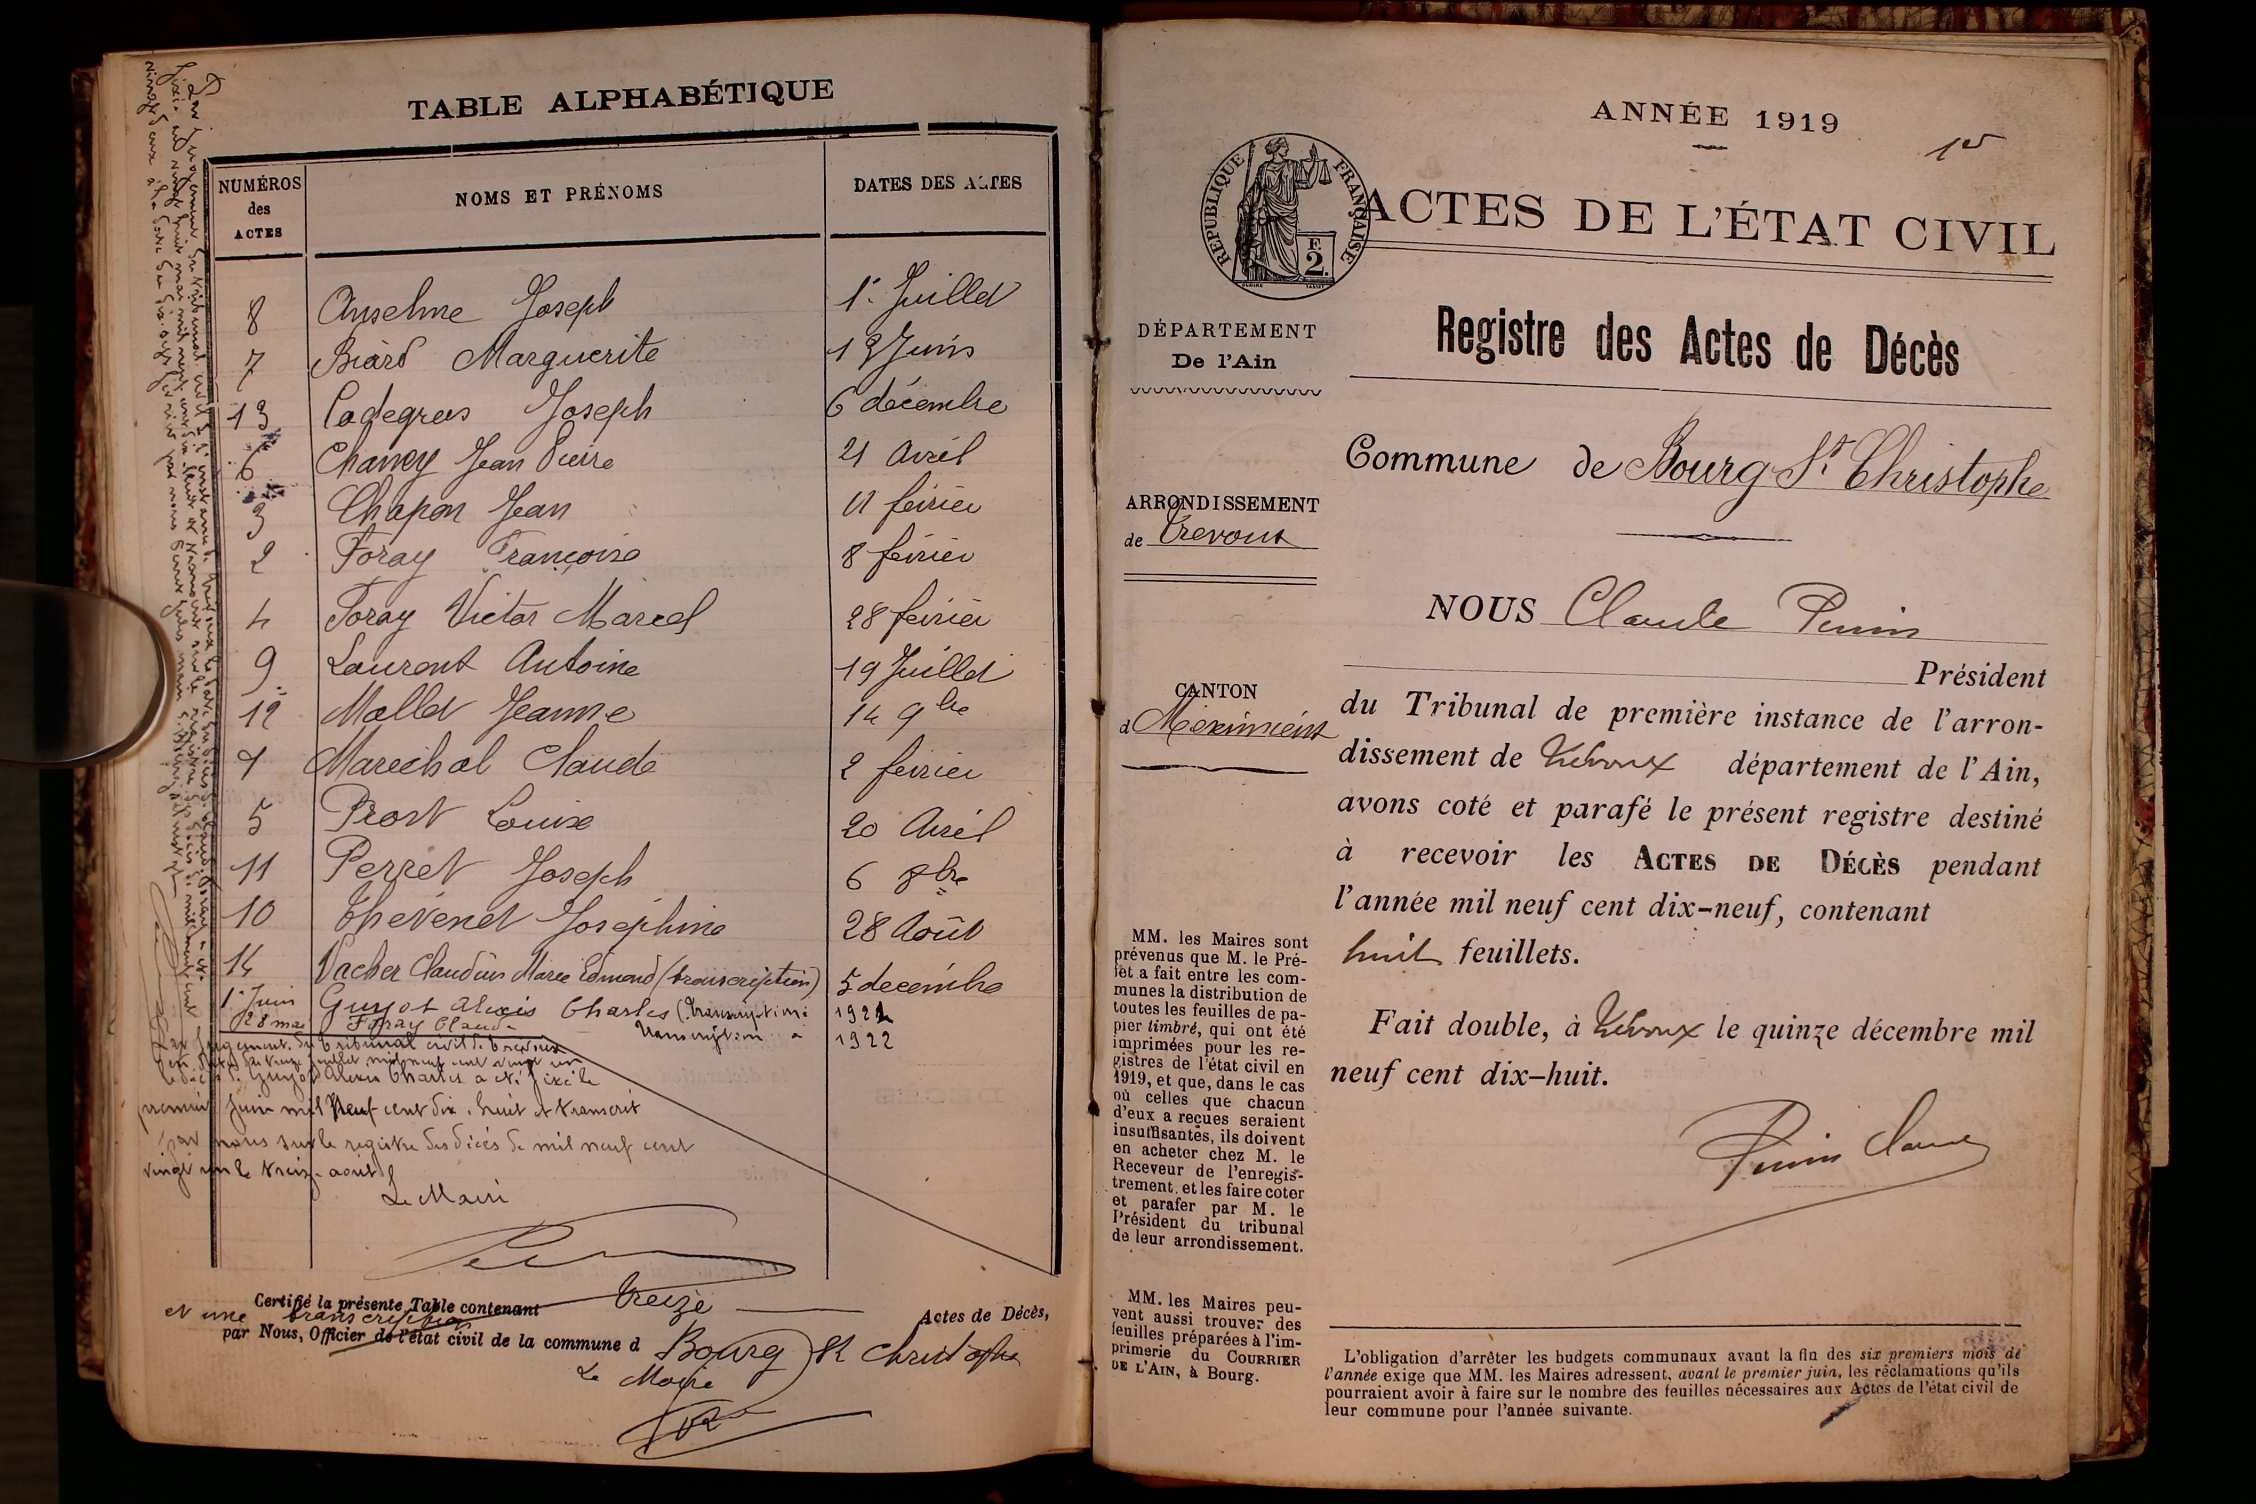 TABLE ALPHABÉTIQUE
NUMÉROS des ACTES
NOMS ET PRÉNOMS
DATES DES ACTES
8 Anselme Joseph 1er Juillet
7 Biard Marguerite 12 Juin
13 Cadegros Joseph 6 décembre
6 Chaney Jean Pierre 21 Avril
3 Chapon Jean 11 février
2 Foray Françoise 8 février
4 Foray Victor Marcel 28 février
9 Laurent Antoine 19 Juillet
12 Mallet Jeanne 14 9bre
1 Maréchal Claude 2 février
5 Prost Louise 20 Avril
11 Perret Joseph 6 8bre
10 Thévenet Joséphine 28 Août
14 Vacher Claudius Marie Edmond (transcription) 5 decembre
1er Juin Guyot Alexis Charles (transcription 1921
28 mai Foray Claude transcription à 1922
Par jugement du tribunal civil de Trévoux
en date du juillet mil neuf cent vingt un
le décès de Guyot Alexis Charles a été fixé le
premier Juin mil neuf cent dix-huit et transcrit
par nous sur le registre des décès de mil neuf cent
vingt un le treize août
Le Maire
Certifié la présente Table contenant Treize Actes de Décès,
et une transcription
par Nous, Officier de l'état civil de la commune d Bourg St Christophe
Le Maire
ANNÉE 1919
1er
RÉPUBLIQUE FRANÇAISE
F.
2.
ACTES DE L'ÉTAT CIVIL
DÉPARTEMENT
De l'Ain
Registre des Actes de Décès
Commune de Bourg St Christophe
ARRONDISSEMENT
de Trevoux
NOUS Claude Perrin
Président
CANTON
d Meximieux
du Tribunal de première instance de l'arron-
dissement de Trévoux département de l'Ain,
avons coté et parafé le présent registre destiné
à recevoir les ACTES DE DÉCÈS pendant
l'année mil neuf cent dix-neuf, contenant
huit feuillets.
Fait double, à Trévoux le quinze décembre mil
neuf cent dix-huit.
Perrin Claude
MM. les Maires sont
prévenus que M. le Pré-
fet a fait entre les com-
munes la distribution de
toutes les feuilles de pa-
pier timbré, qui ont été
imprimées pour les re-
gistres de l'état civil en
1919, et que, dans le cas
où celles que chacun
d'eux a reçues seraient
insuffisantes, ils doivent
en acheter chez M. le
Receveur de l'enregis-
trement, et les faire coter
et parafer par M. le
Président du tribunal
de leur arrondissement.
MM. les Maires peu-
vent aussi trouver des
feuilles préparées à l'im-
primerie du COURRIER
DE L'AIN, à Bourg.
L'obligation d'arrêter les budgets communaux avant la fin des six premiers mois de
l'année exige que MM. les Maires adressent, avant le premier juin, les réclamations qu'ils
pourraient avoir à faire sur le nombre des feuilles nécessaires aux Actes de l'état civil de
leur commune pour l'année suivante.